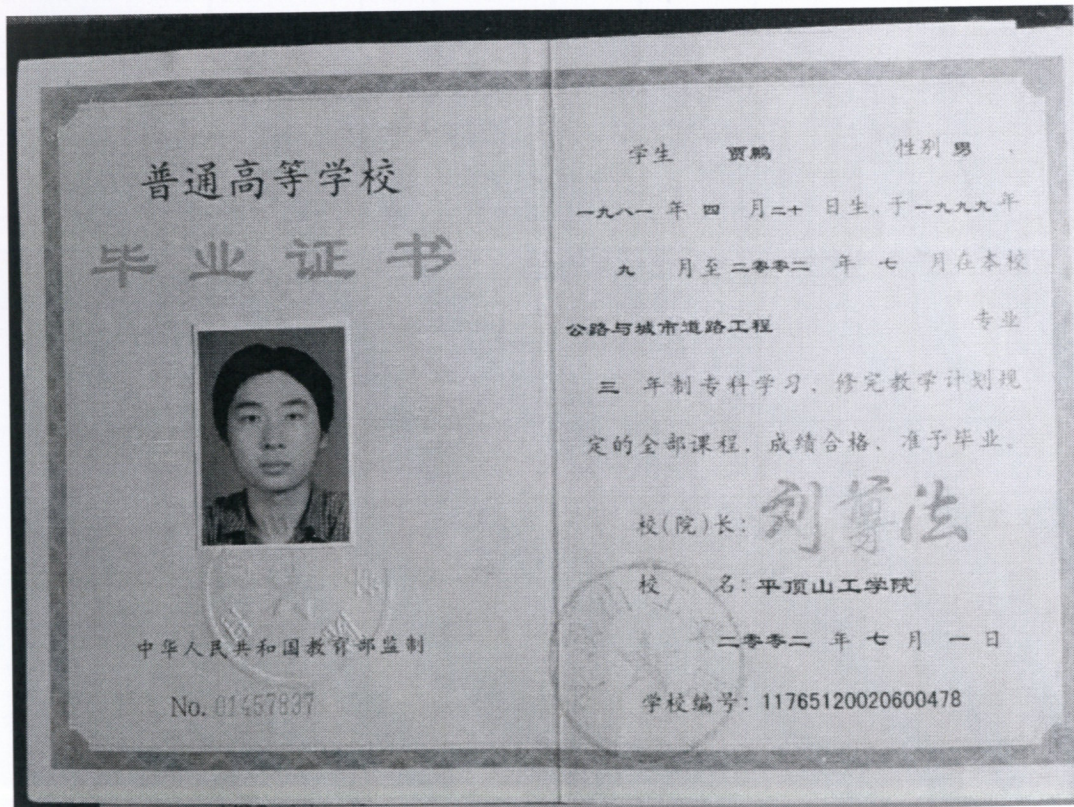 普通高等学校
毕业证书
中华人民共和国教育部监制
No. 01457837
学生 贾鹏 性别 男 、
一九八一 年 四 月 二十 日生、于 一九九九 年
九 月至 二零零二 年 七 月在本校
公路与城市道路工程 专业
三 年制专科学习、修完教学计划规
定的全部课程、成绩合格、准予毕业。
校(院)长: 刘尊法
校 名: 平顶山工学院
二零零二 年 七 月 一 日
学校编号: 11765120020600478